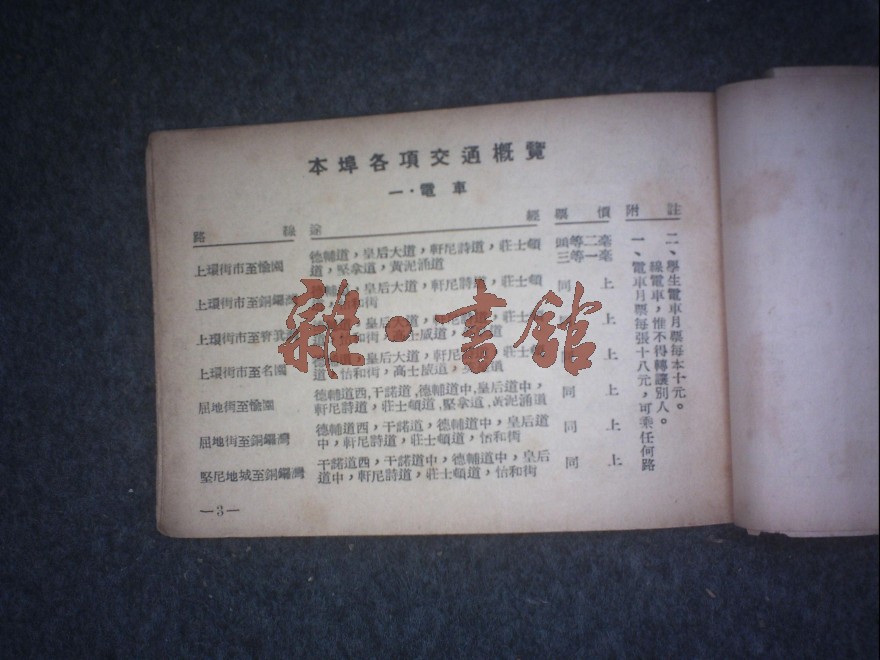 本埠各項交通概覽
一·電車
路線 途經 票價 附註
上環街市至愉園 德輔道，皇后大道，軒尼詩道，莊士頓道，堅拿道，黃泥涌道 頭等二毫 三等一毫
上環街市至銅鑼灣 德輔道，皇后大道，軒尼詩道，莊士頓 怡和街 同上
上環街市至 皇后大道，軒尼詩道 怡和街，高士威道 同上
上環街市至名園 皇后大道，軒尼 莊士頓道，怡和街，高士威道 同上
屈地街至愉園 德輔道西，干諾道，德輔道中，皇后道中，軒尼詩道，莊士頓道，堅拿道，黃泥涌道 同上
屈地街至銅鑼灣 德輔道西，干諾道，德輔道中，皇后道中，軒尼詩道，莊士頓道，怡和街 同上
堅尼地城至銅鑼灣 干諾道西，干諾道中，德輔道中，皇后道中，軒尼詩道，莊士頓道，怡和街 同上
一、電車月票每張十八元，可乘任何路線電車，惟不得轉讓別人。
二、學生電車月票每本十元。
—3—
雜·書館